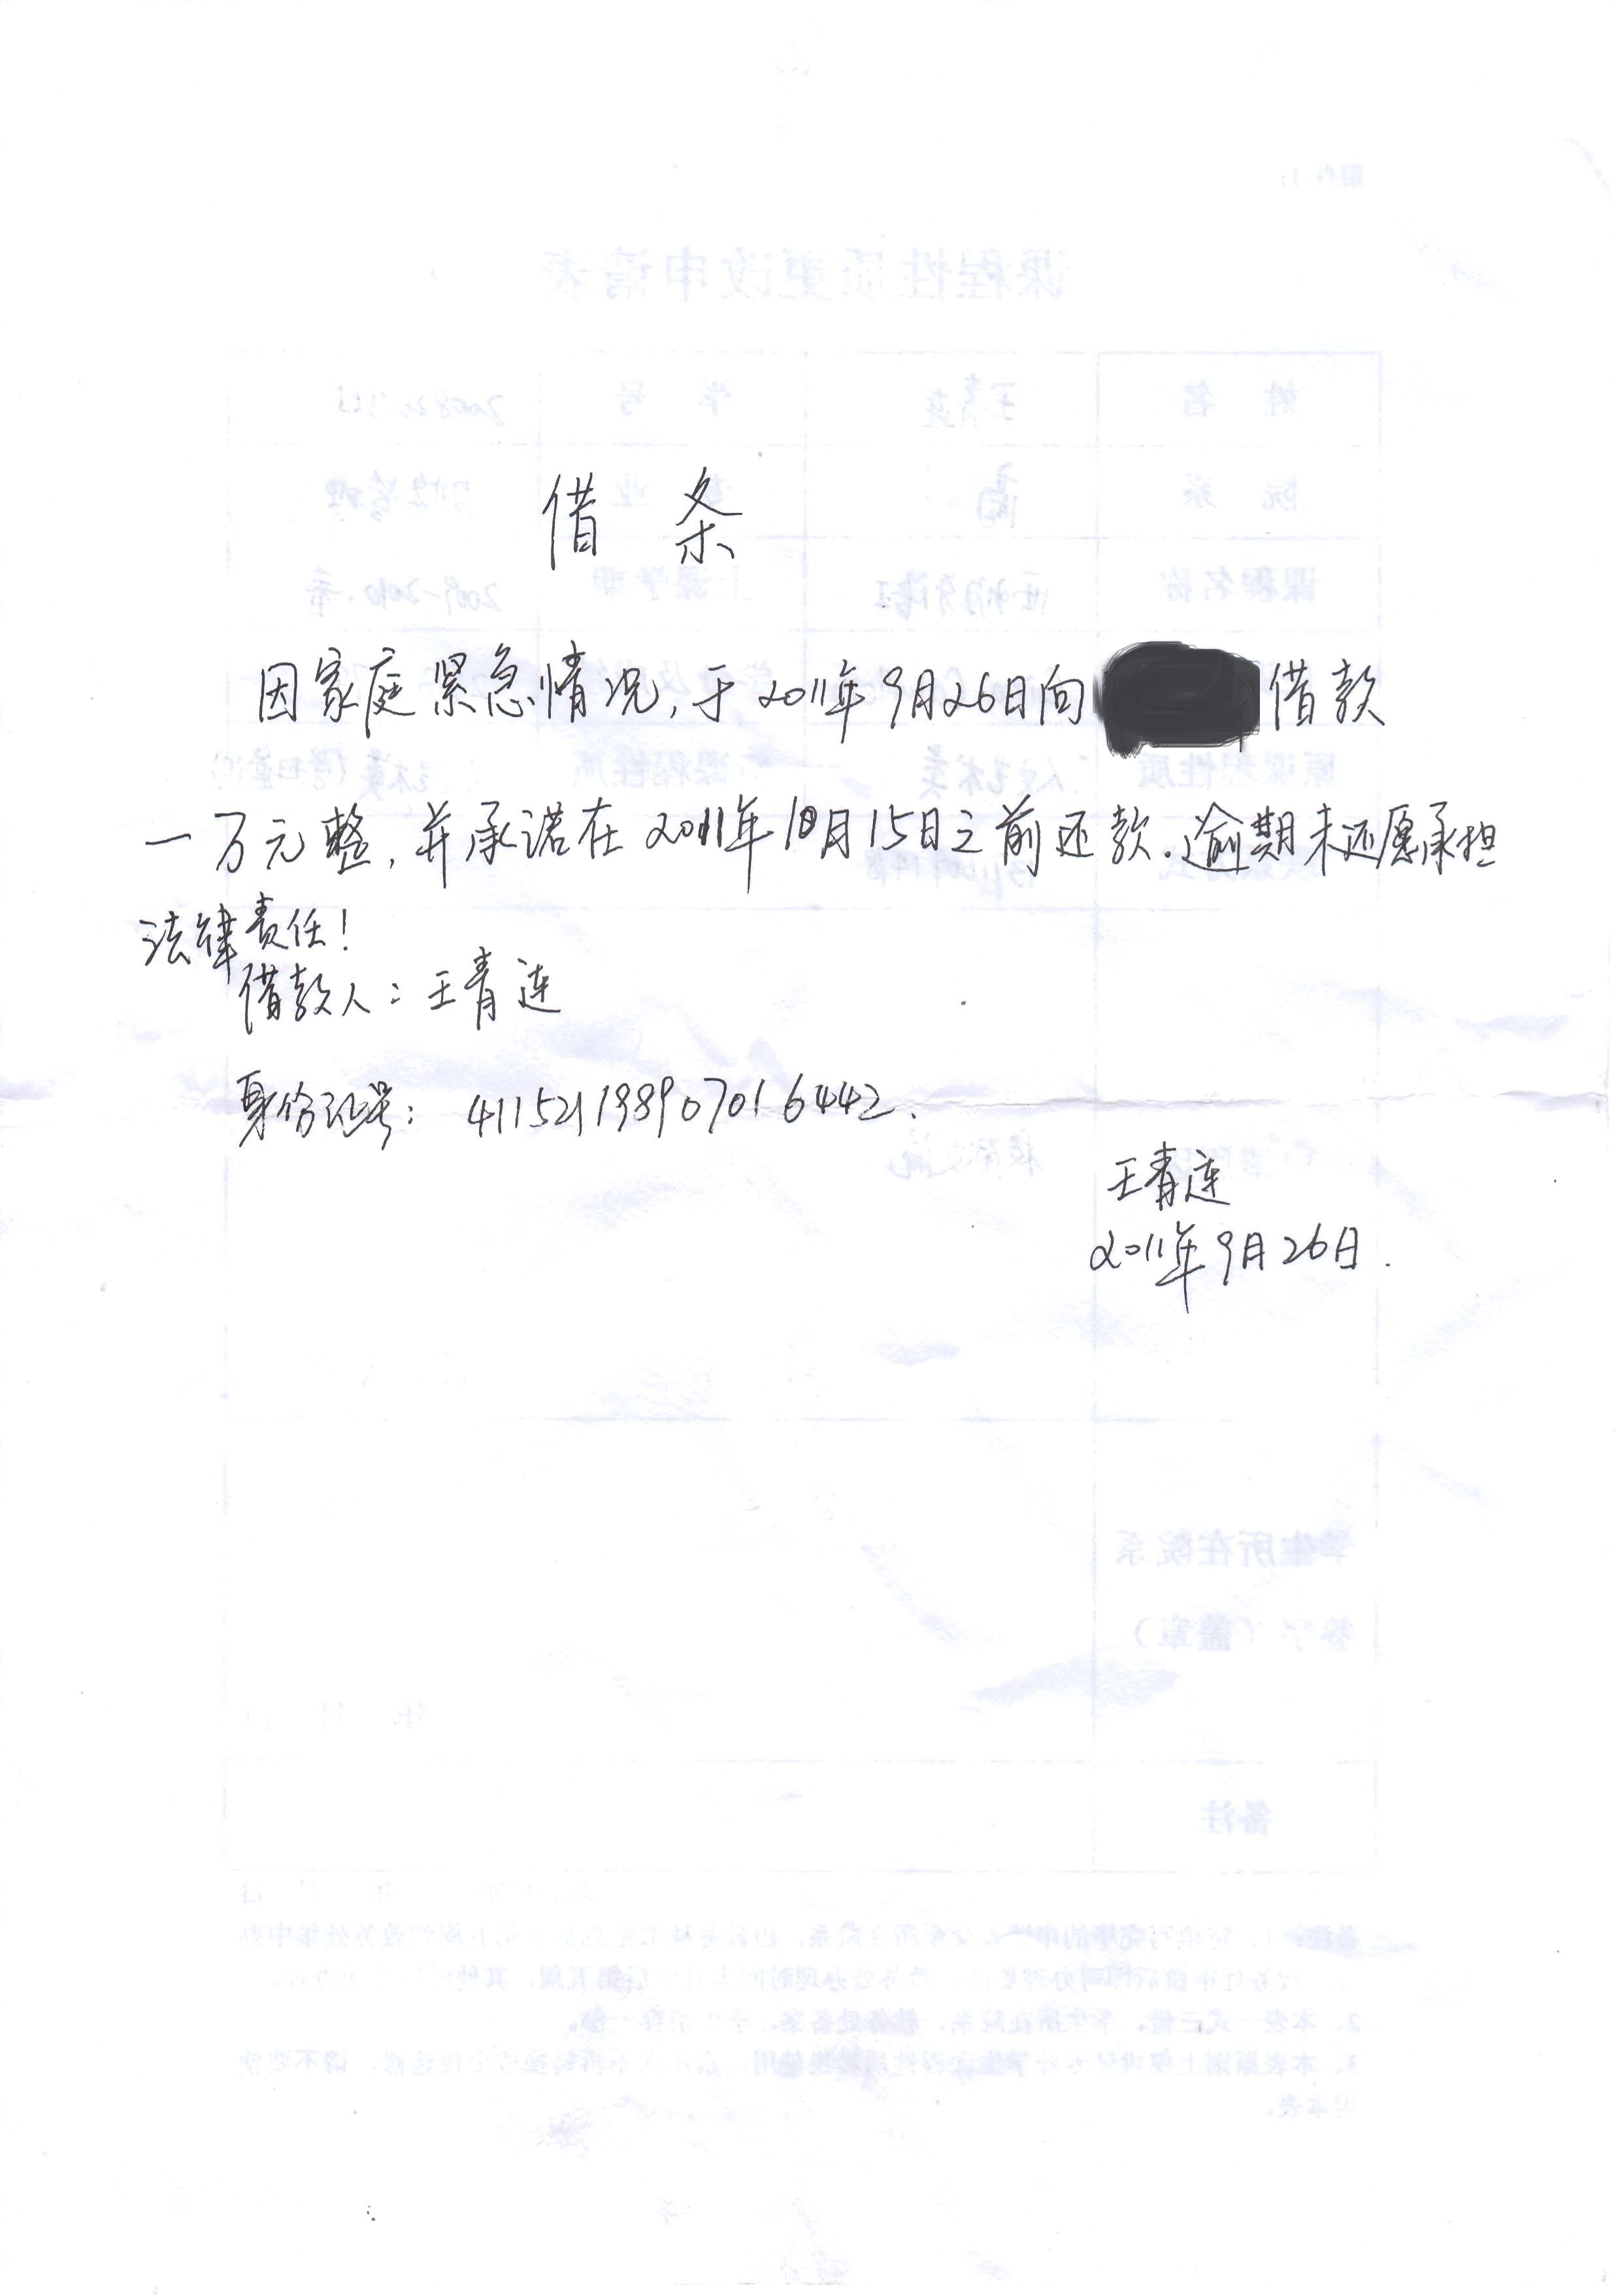 借条
因家庭紧急情况,于2011年9月26日向 借款
一万元整,并承诺在2011年10月15日之前还款.逾期未还愿承担
法律责任!
借款人:王青连
身份证号: 411521198907016442.
王青连
2011年9月26日.